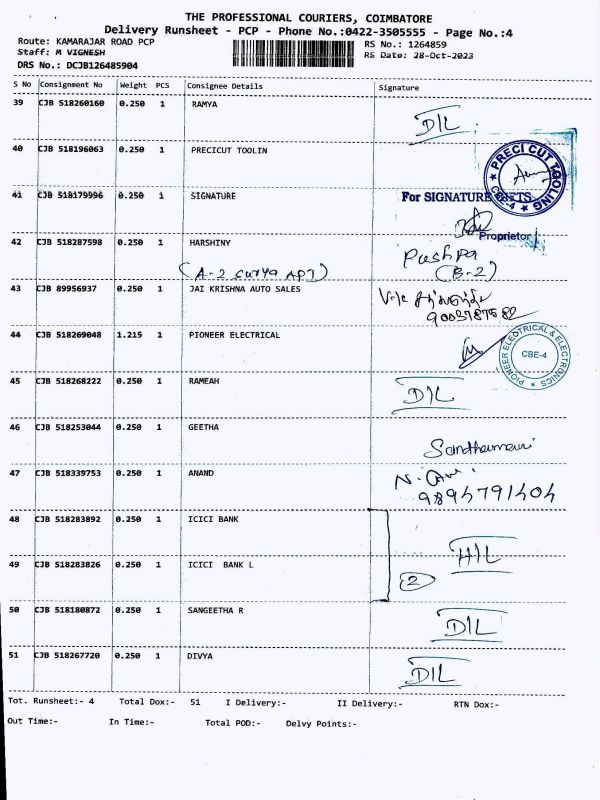 THE PROFESSIONAL COURIERS, COIMBATORE
Delivery Runsheet - PCP - Phone No.:0422-3505555 - Page No.:4
Route: KAMARAJAR ROAD PCP
RS No.: 1264859
Staff: M VIGNESH
RS Date: 28-Oct-2023
DRS No.: DCJB126485904
S No Consignment No Weight PCS Consignee Details Signature
39 CJB 518260160 0.250 1 RAMYA D/L
40 CJB 518196063 0.250 1 PRECICUT TOOLIN
PRECI CUT TOOLING
CBE-4
41 CJB 518179996 0.250 1 SIGNATURE For SIGNATURE GIFTS
Proprietor
42 CJB 518287598 0.250 1 HARSHINY Pushpa
(A-2 surya APT) (B-2)
43 CJB 89956937 0.250 1 JAI KRISHNA AUTO SALES
44 CJB 518269048 1.215 1 PIONEER ELECTRICAL
PIONEER ELECTRICAL & ELECTRONICS
CBE-4
45 CJB 518268222 0.250 1 RAMEAH D/L
46 CJB 518253044 0.250 1 GEETHA
47 CJB 518339753 0.250 1 ANAND
9894791404
48 CJB 518283892 0.250 1 ICICI BANK
H/L
49 CJB 518283826 0.250 1 ICICI BANK L
2
50 CJB 518180872 0.250 1 SANGEETHA R D/L
51 CJB 518267720 0.250 1 DIVYA D/L
Tot. Runsheet:- 4 Total Dox:- 51 I Delivery:- II Delivery:- RTN Dox:-
Out Time:- In Time:- Total POD:- Delvy Points:-